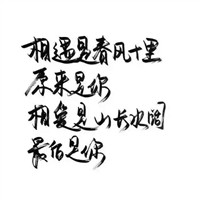 相遇是春风十里
原来是你
相爱是山长水阔
最后是你